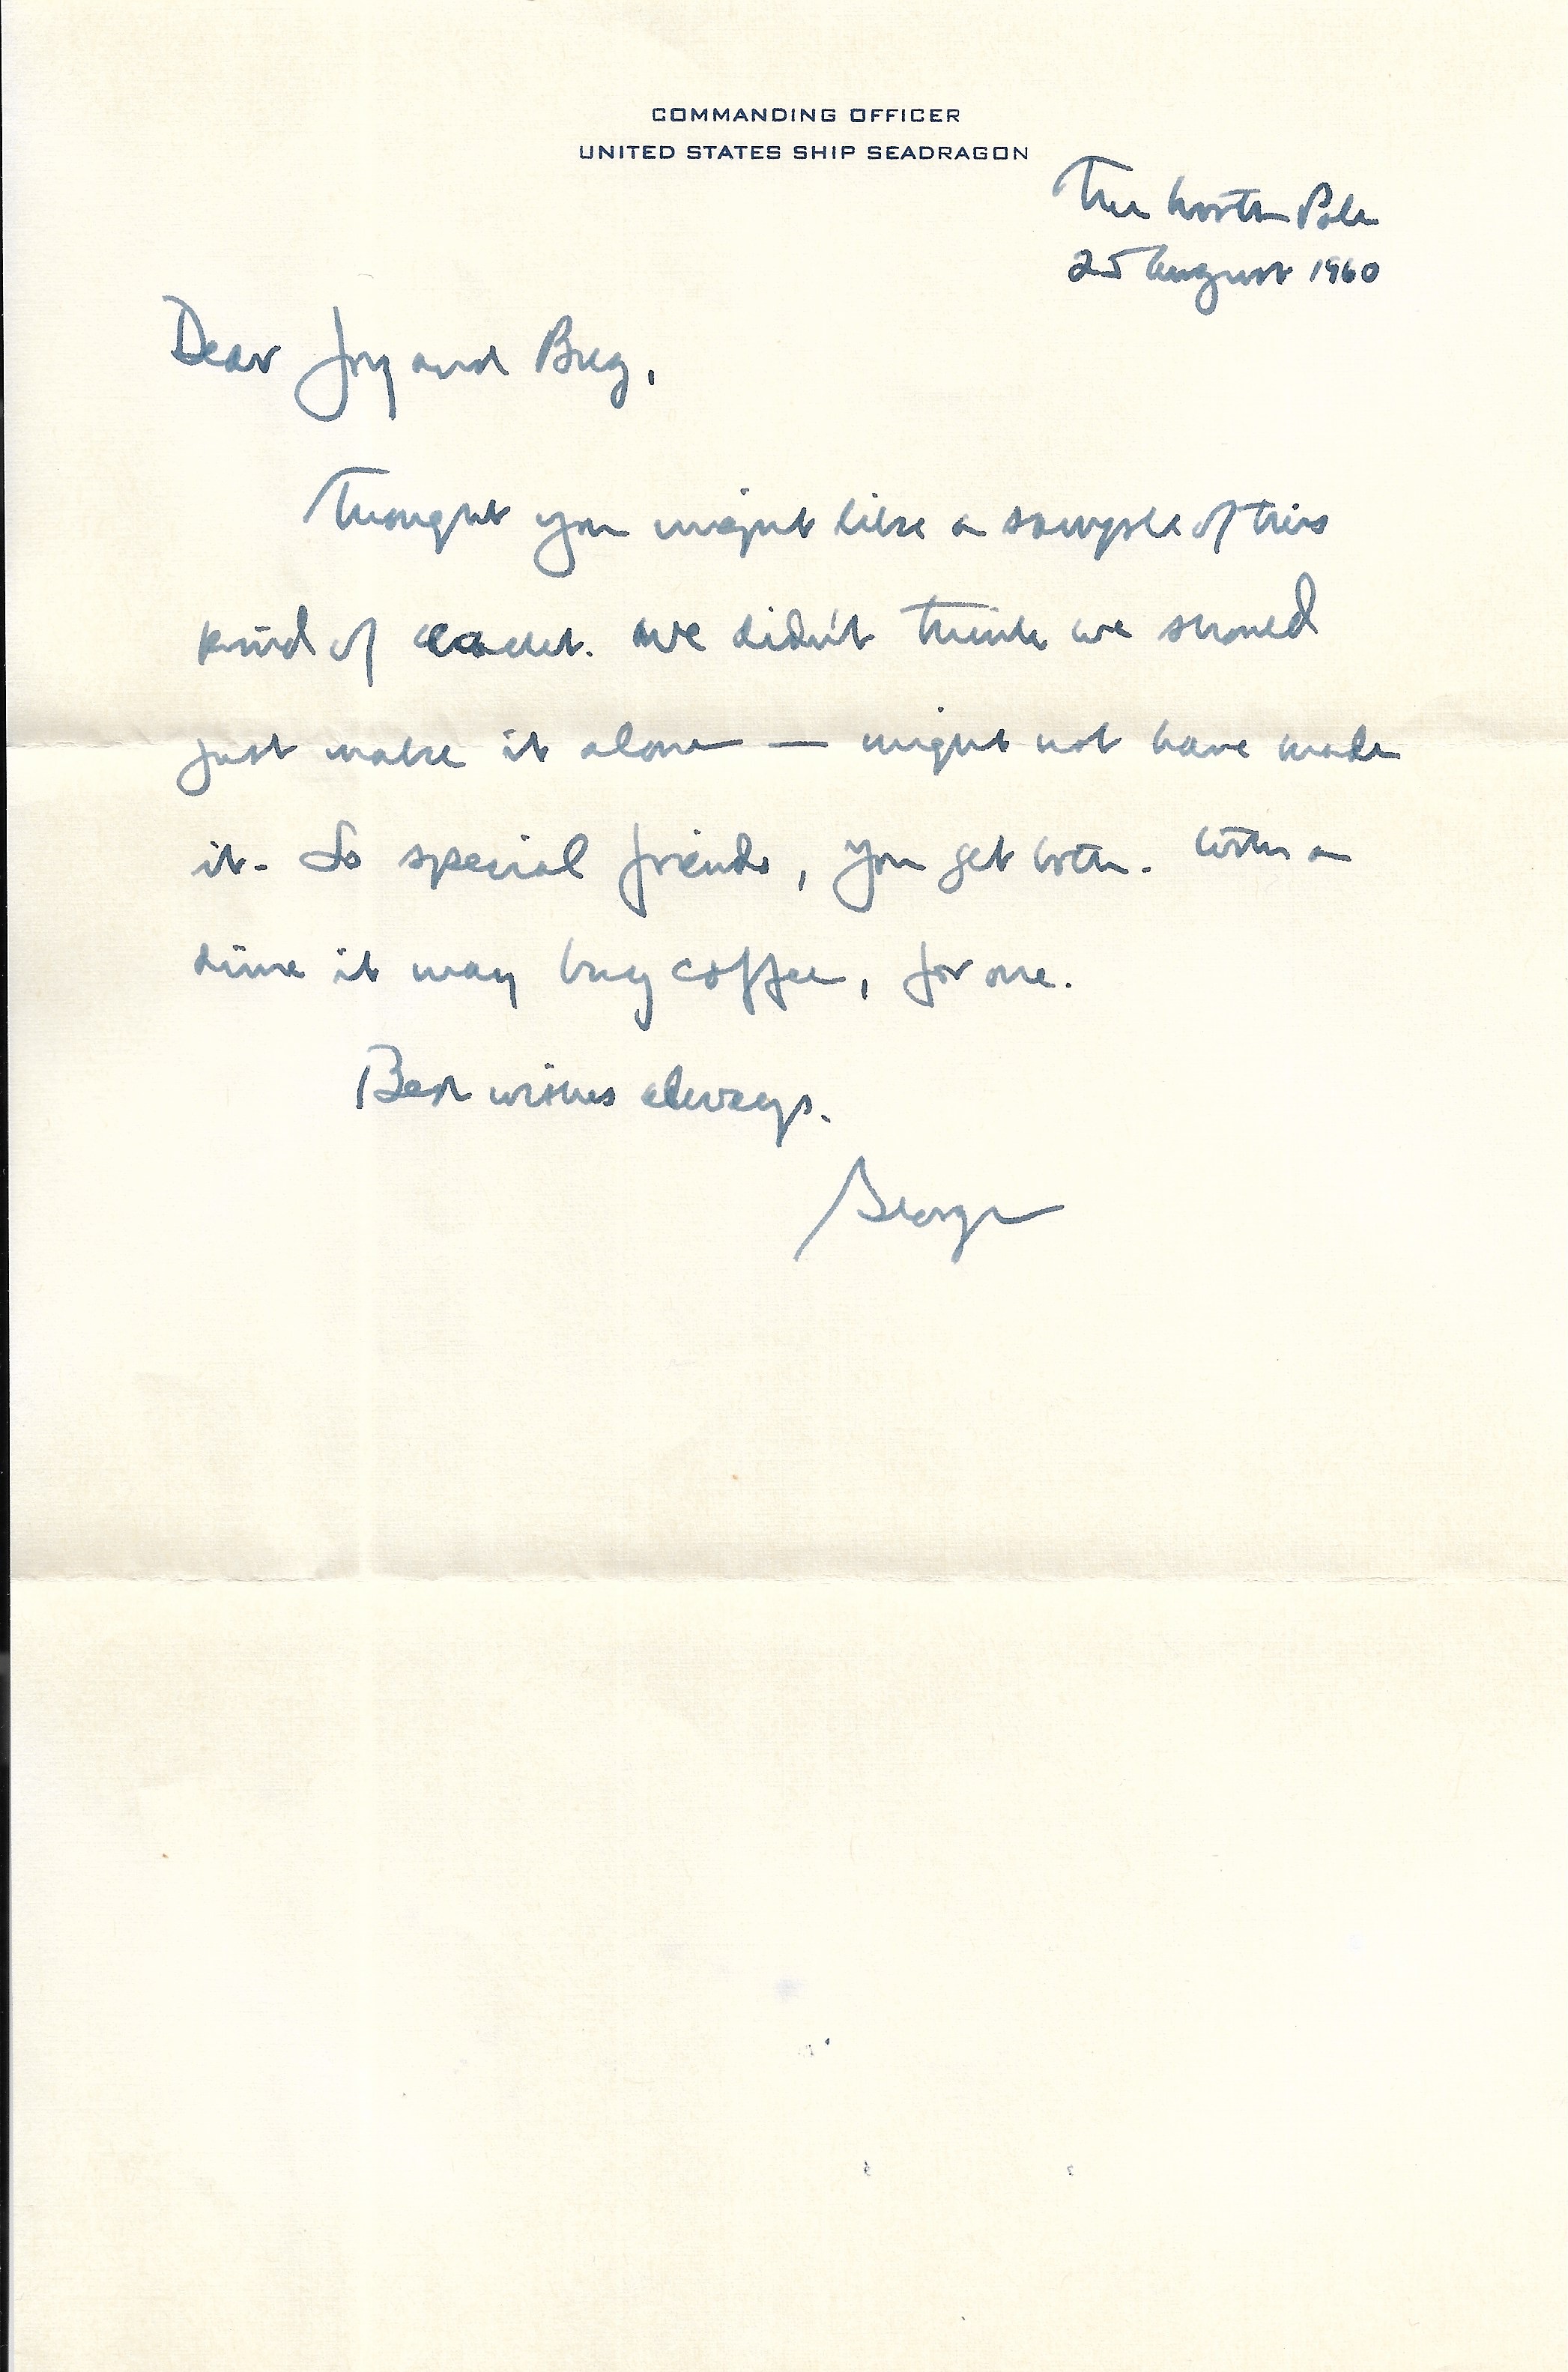 COMMANDING OFFICER
UNITED STATES SHIP SEADRAGON
The North Pole
25 August 1960
Dear Joy and Bug,
Thought you might like a sample of this
kind of cachet. We didn't think we should
just make it alone — might not have made
it. So special friends, you get both. With a
dime it may buy coffee, for one.
Best wishes always.
George